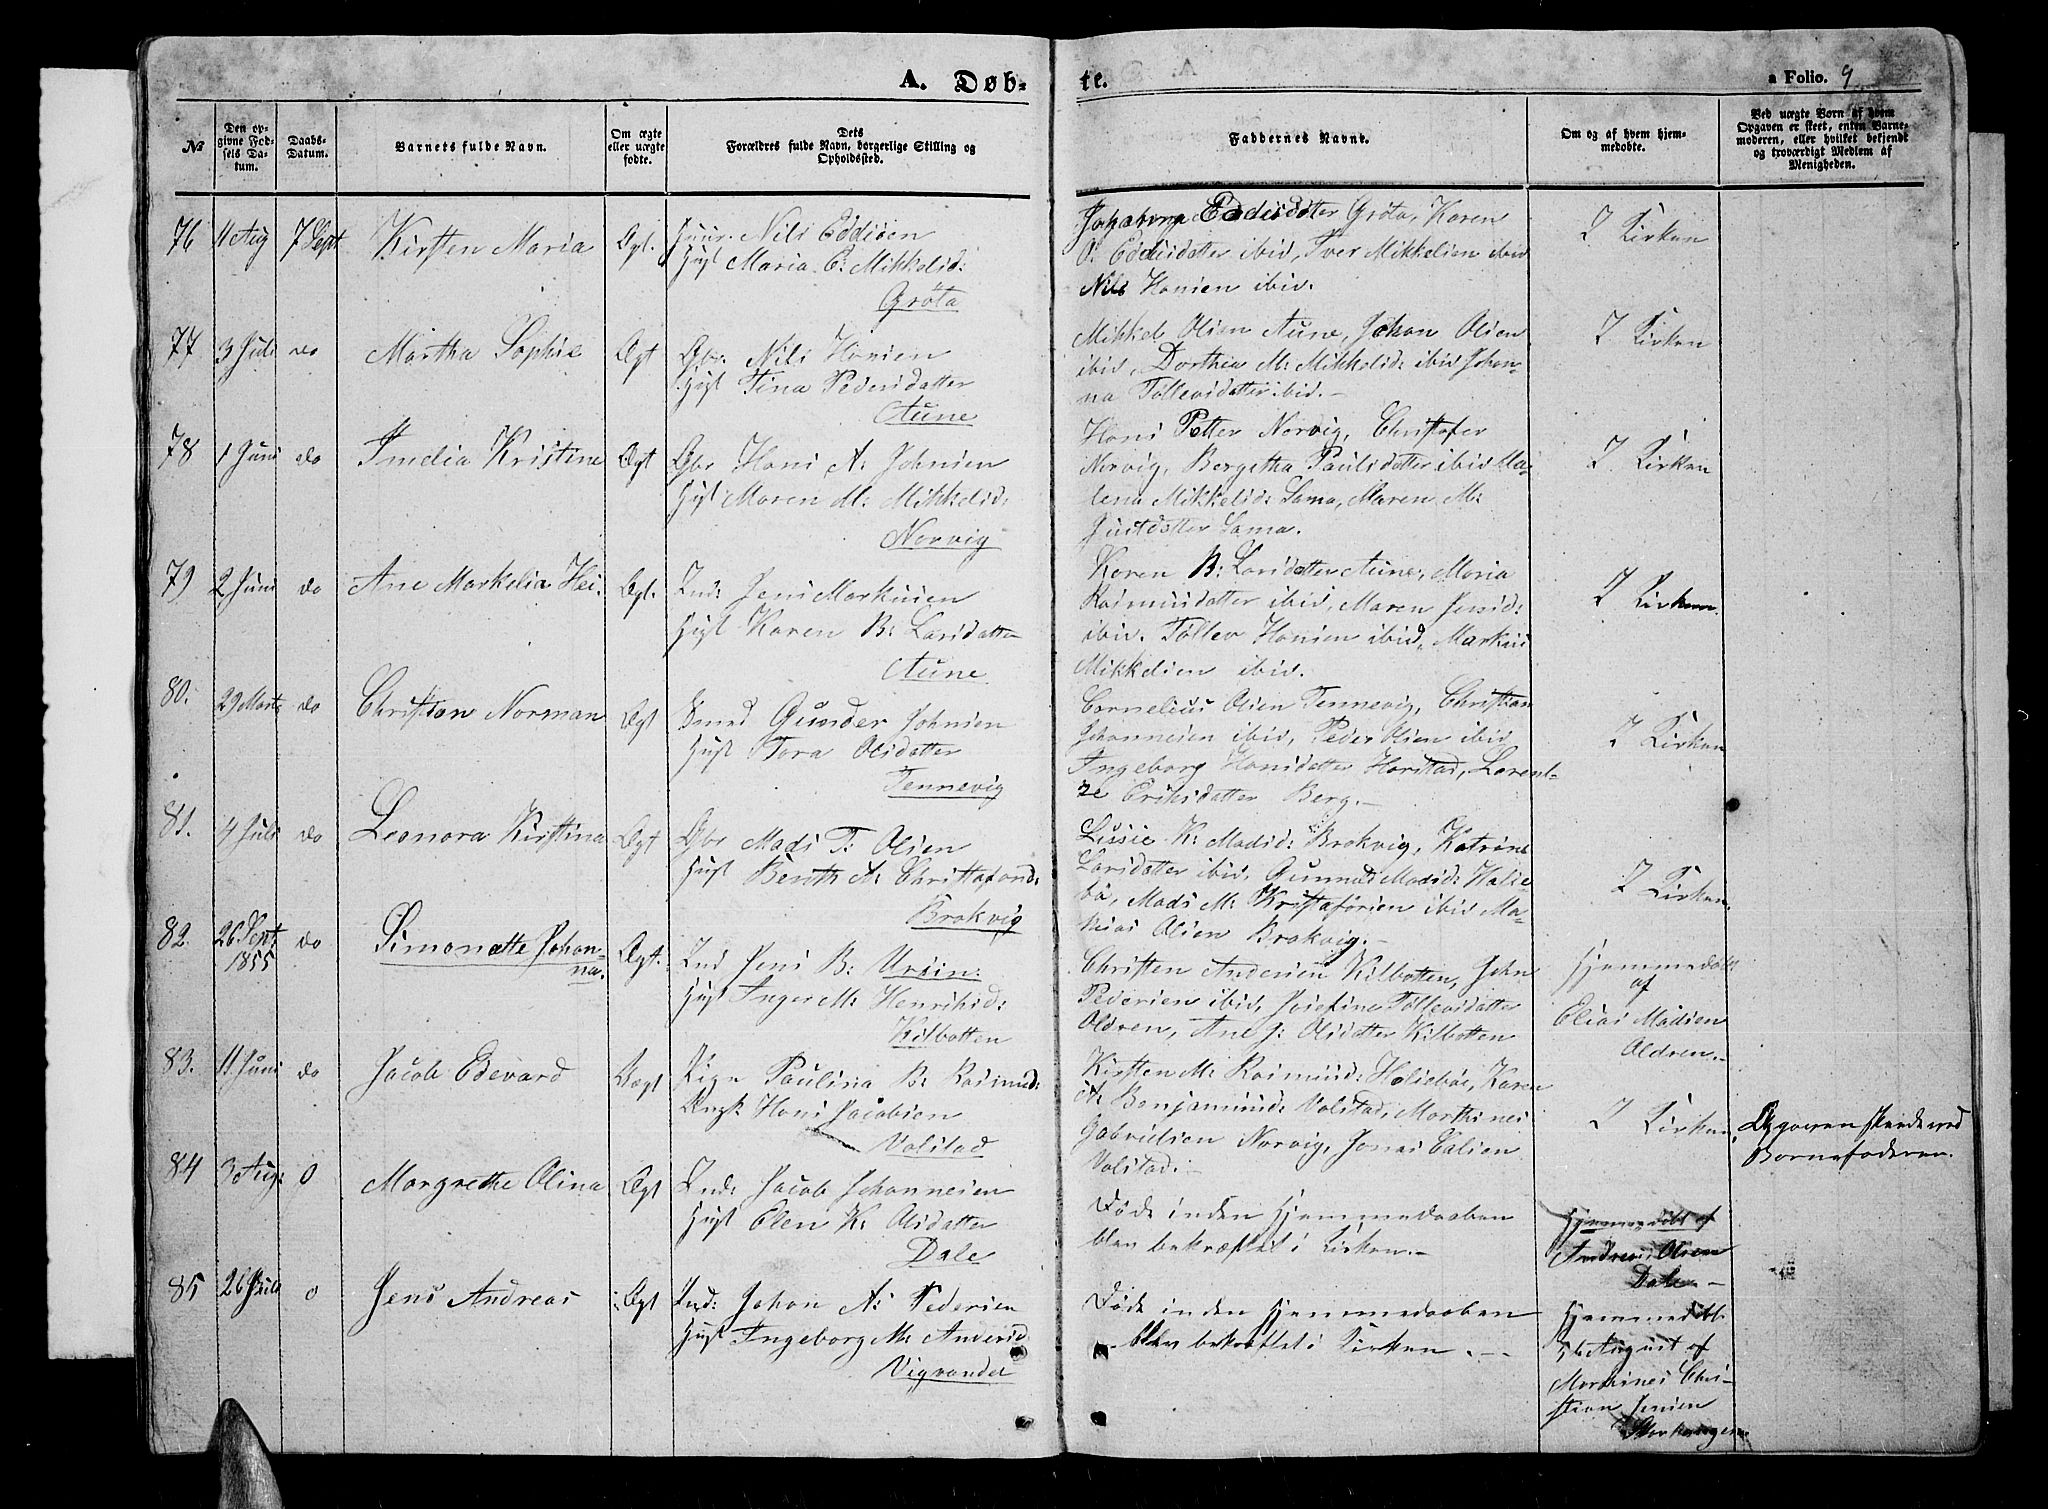 A. Døb-
te.
a Folio. 9
№
Den op-
givne Fød-
sels Da-
tum.
Daabs-
Datum.
Barnets fulde Navn.
Om ægte
eller uægte
fødte.
Dets
Forældres fulde Navn, borgerlige Stilling og
Opholdssted.
Faddernes Navne.
Om og af hvem hjem-
medøbt.
Ved uægte Børn af hvem
Opgaven er skeet, enten Barne-
moderen, eller hvilket bekjendt
og troværdigt Medlem af
Menigheden.
76 11 Aug 7 Sept Kirsten Maria Ægt. Huusm. Nils Eddisen
Hust Maria E: Mikkelsd:
Grøta
Eddisdatter Grøta, Karen
O: Eddisdatter ibid, Iver Mikkelsen ibid
Nils Hansen ibid.
I Kirken
77 3 Juli do Martha Sophie Ægt Gbr. Nils Hansen
Hust Tina Pedersdatter
Aune
Mikkel Olsen Aune, Johan Olsen
ibid, Dorthea M: Mikkelsd: ibid Johan-
na Tollevsdatter ibid.-
I Kirken
78 1 Juni do Imelia Kristine Ægt Gbr Hans A: Johnsen
Hust Maren M: Mikkelsd:
Norvig
Hans Petter Norvig, Christofer
Norvig, Bergetha Paulsdatter ibid Ma-
lena Mikkelsd: Sama, Maren M:
Justdatter Sama.
I Kirken
79 2 Juni do Ane Markelia Hei. Ægt. Ind: Jens Markusen
Hust Karen B: Larsdatter
Aune
Karen B: Larsdatter Aune, Maria
Rasmusdatter ibid, Maren Jensd:
ibid. Tollev Hansen ibid, Markus
Mikkelsen ibid.
I Kirken.
80. 29 Marts do Christian Norman Ægt Smed Gunder Johnsen
Hust Tora Olsdatter
Tennevig
Cornelius Olsen Tennevig, Christian
Johannesen ibid, Peder Olsen ibid
Ingeborg Hansdatter Harstad, Lorent-
ze Eriksdatter Berg.-
I Kirken
81. 4 Juli do Leonora Kirstina Ægt Gbr Mads T: Olsen
Hust Benth A: Christafersd:
Brokvig
Lissie K: Madsd: Brokvig, Katrine
Larsdatter ibid, Gunnild Madsd: Halse-
bø, Mads M: Kristafersen ibid Ma-
thias Olsen Brokvig.-
I Kirken.
82. 26 Sept
1855 do Simonette Johan-
na. Ægt. Ind Jens B: Ursin:
Hust Inger M: Henriksd:
Kilbotten
Christen Andersen Kilbotten, John
Pedersen ibid, Josefine Tollevsdatter
Aldren, Ane J: Olsdatter Kilbotten
Hjemmedøbt
af
Elias Madsen
Aldren.-
83. 11 Juni do Jacob Edevard Uægt Pige Paulina B: Rasmusd:
Ungk: Hans Jacobsen
Valstad
Kirsten M: Rasmusd: Halsebøe, Karen
A: Benjaminsd: Valstad, Marthines
Gabrielsen Norvig, Jonas Ealisen
Valstad.-
I Kirken.
Opgaven skeede ved
Barnefaderen.
84 3 Aug: 0 Margrethe Olina Ægt Ind: Jacob Johannesen
Hust Elen K: Olsdatter
Dale
Døde inden Hjemmedaaben
blev bekræftet i Kirken.-
Hjemmedøbt af
Andreas Olsen
Dale-
85 26 Juli 0 Jens Andreas Ægt Ind: Johan A: Pedersen
Hust Ingeborg M: Andersd
Vigvandet
Døde inden Hjemmedaaben
blev bekræftet i Kirken.-
Hjemmedøbt
August af
Marthines Chri-
stian Jensen